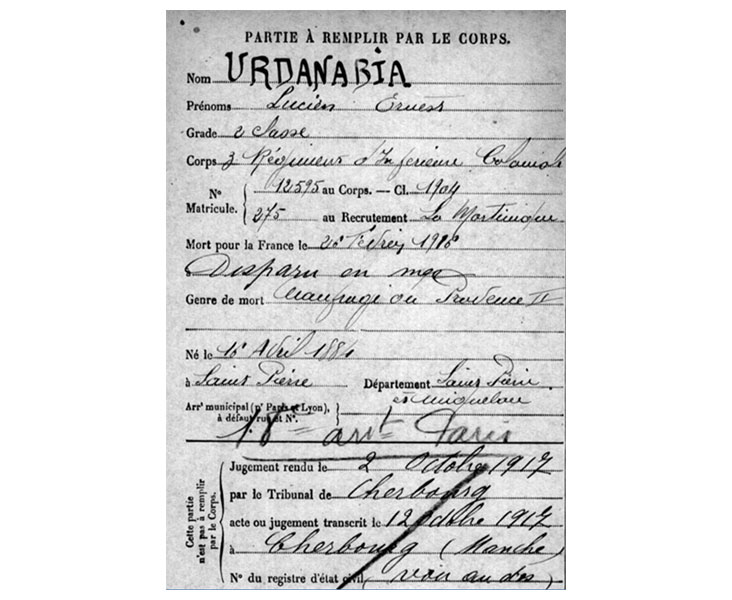 PARTIE À REMPLIR PAR LE CORPS.
Nom URDANABIA
Prénoms Lucien Ernest
Grade 2 Classe
Corps 3 Régiment d'Infanterie Coloniale
N° Matricule. 12595 au Corps. — Cl. 1904
275 au Recrutement La Martinique
Mort pour la France le 26 Février 1916
à Disparu en mer
Genre de mort Naufragé du Provence II
Né le 16 Avril 1884
à Saint Pierre Département Saint Pierre
et Miquelon
Arr' municipal (p' Paris et Lyon),
à défaut rue et N°.
18me arrt Paris
Cette partie
n'est pas à remplir
par le Corps.
Jugement rendu le 2 Octobre 1917
par le Tribunal de Cherbourg
acte ou jugement transcrit le 12 octobre 1917
à Cherbourg (Manche)
N° du registre d'état civil (voir au dos)